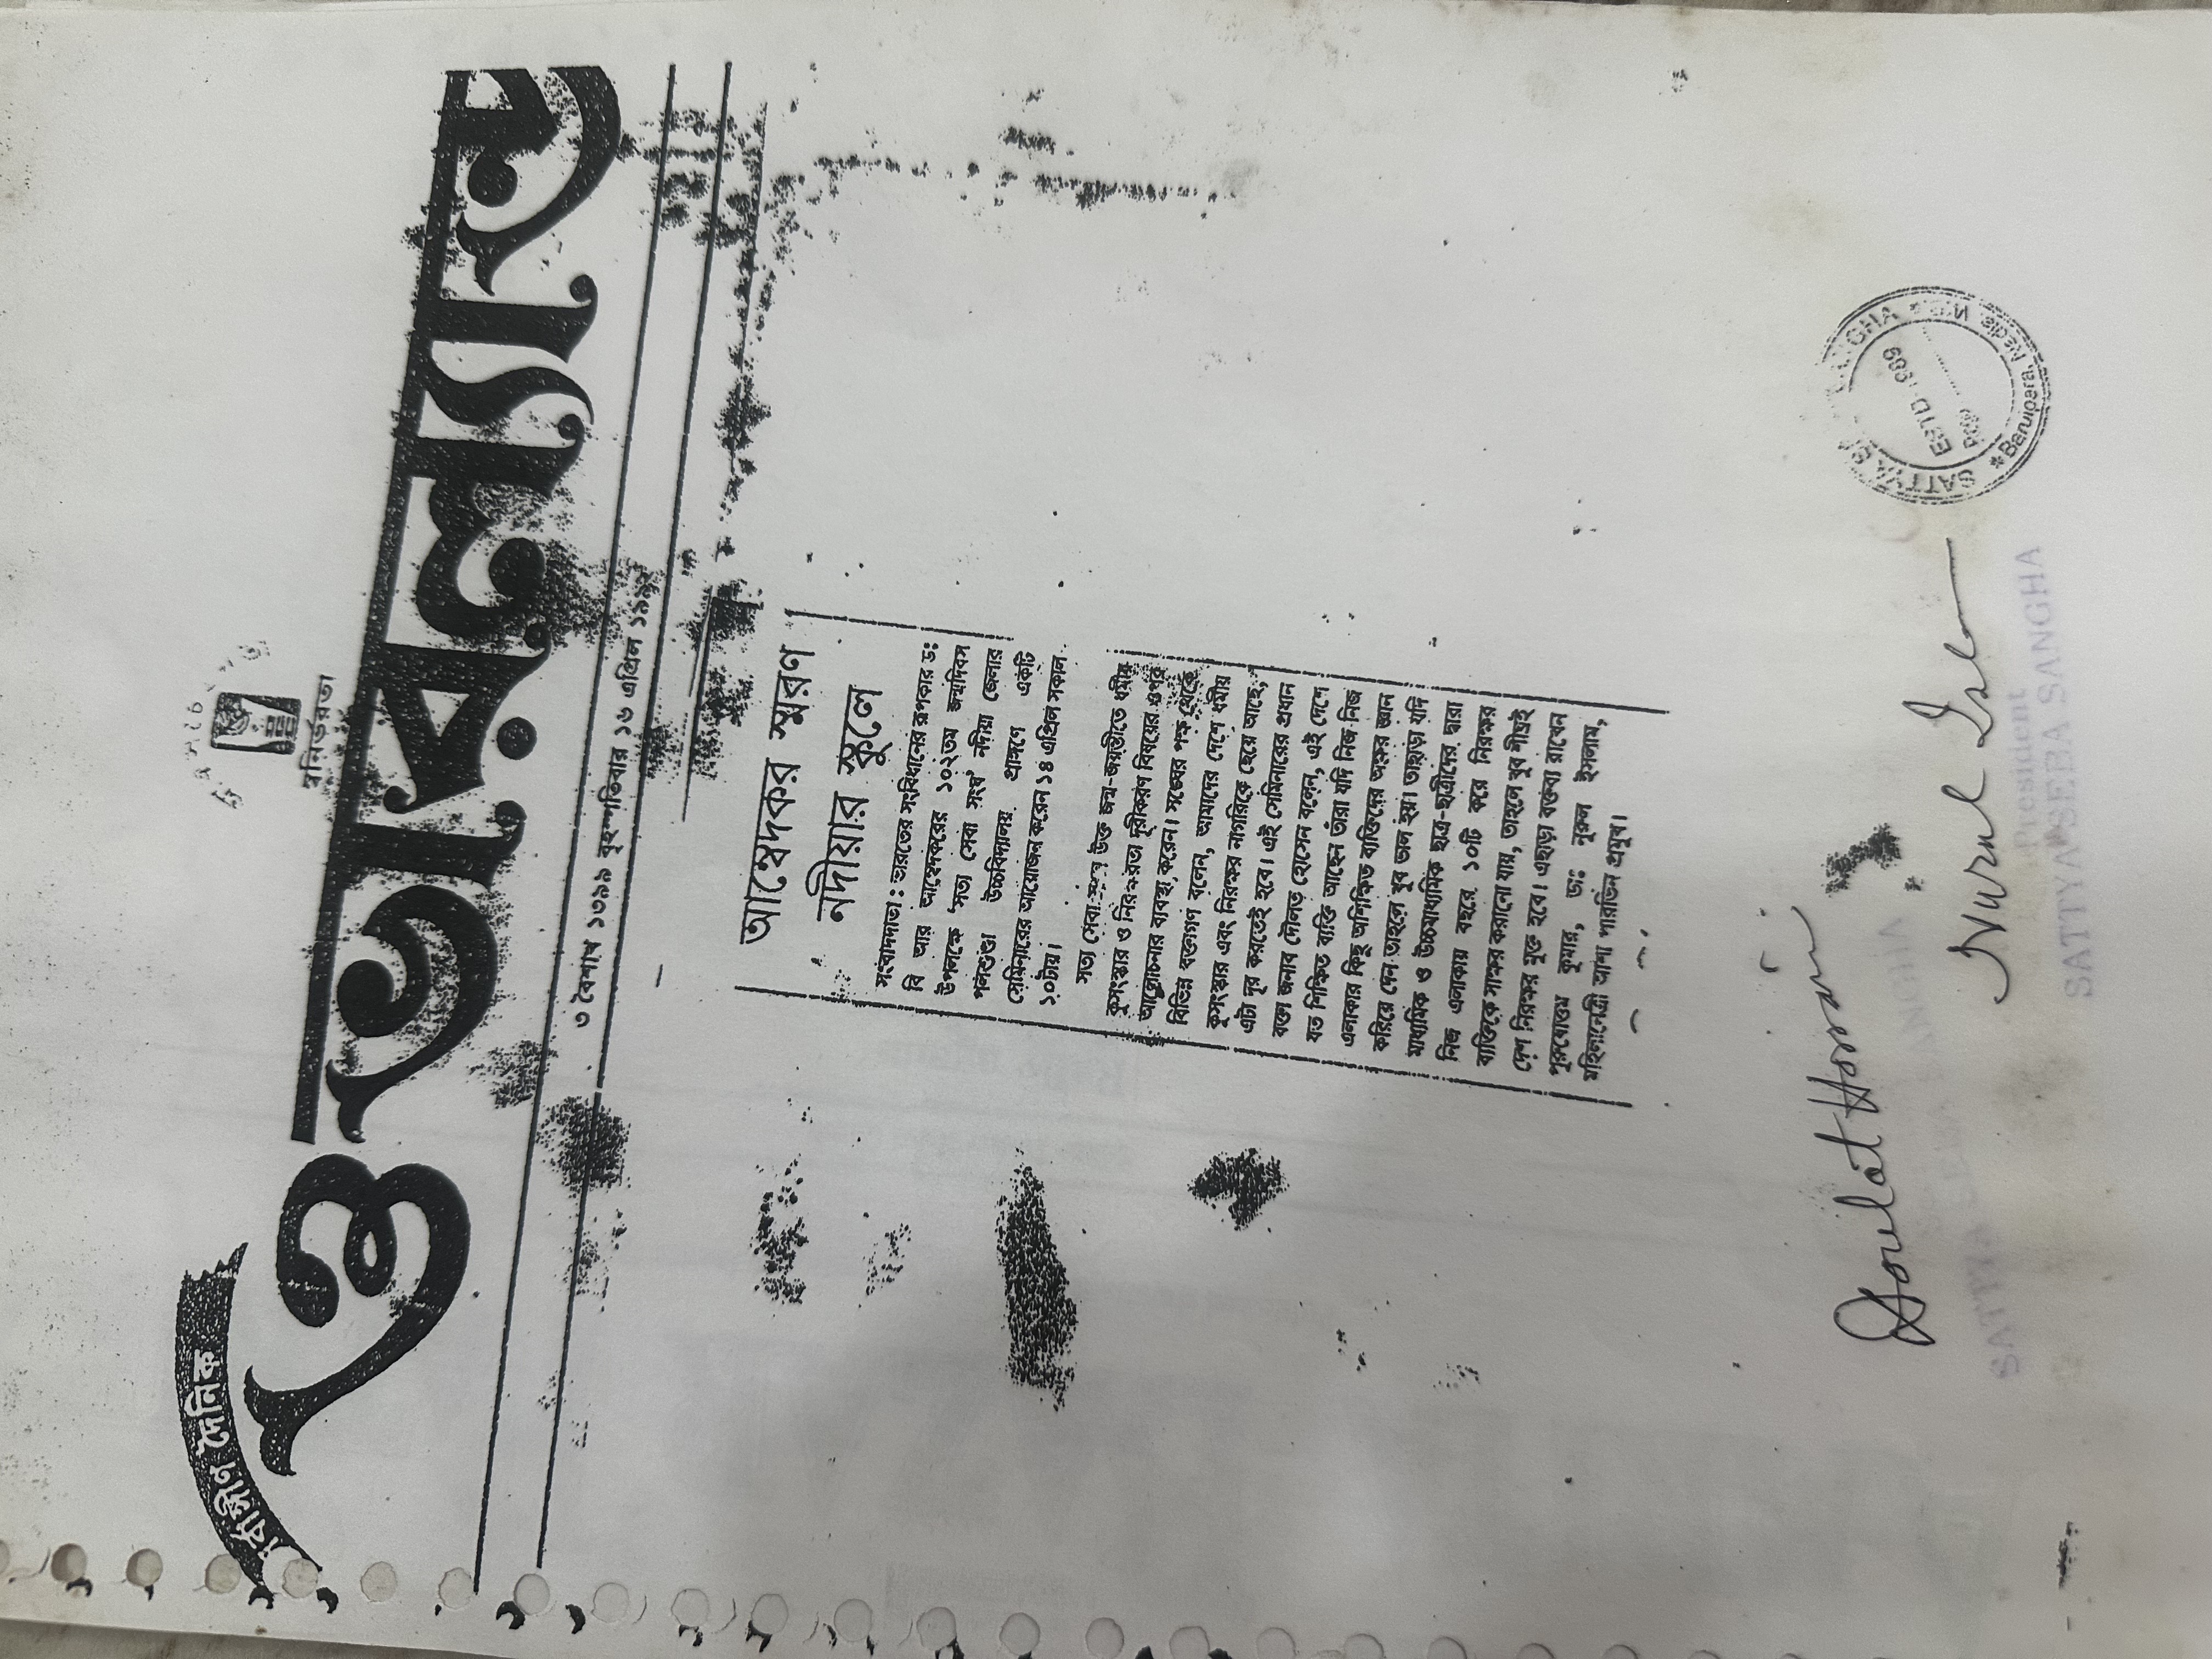 সর্বাঙ্গীণ দৈনিক
স্বনির্ভরতা
ওভারল্যান্ড
৩ বৈশাখ ১৩৯৯ বৃহস্পতিবার ১৬ এপ্রিল ১৯৯২
আম্বেদকর স্মরণ
নদীয়ার স্কুলে
সংবাদদাতা : ভারতের সংবিধানের রূপকার ডঃ
বি আর আম্বেদকরের ১০২তম জন্মদিবস
উপলক্ষে 'সত্য সেবা সংঘ' নদীয়া জেলার
পলশুণ্ডা উচ্চবিদ্যালয় প্রাঙ্গণে একটি
সেমিনারের আয়োজন করেন ১৪ এপ্রিল সকাল
১০টায়।
সত্য সেবা সংঘ উক্ত জন্ম-জয়ন্তীতে ধর্মীয়
কুসংস্কার ও নিরক্ষরতা দূরীকরণ বিষয়ের ওপর
আলোচনার ব্যবস্থা করেন। সংঘের পক্ষ থেকে
বিভিন্ন বক্তাগণ বলেন, আমাদের দেশে ধর্মীয়
কুসংস্কার এবং নিরক্ষর নাগরিকে ছেয়ে আছে,
এটা দূর করতেই হবে। এই সেমিনারের প্রধান
বক্তা জনাব দৌলত হোসেন বলেন, এই দেশে
যত শিক্ষিত ব্যক্তি আছেন তাঁরা যদি নিজ নিজ
এলাকার কিছু অশিক্ষিত ব্যক্তিদের অক্ষর জ্ঞান
করিয়ে দেন তাহলে খুব ভাল হয়। তাছাড়া যদি
মাধ্যমিক ও উচ্চমাধ্যমিক ছাত্র-ছাত্রীদের দ্বারা
নিজ এলাকায় বছরে ১০টি করে নিরক্ষর
ব্যক্তিকে সাক্ষর করানো যায়, তাহলে খুব শীঘ্রই
দেশ নিরক্ষর মুক্ত হবে। এছাড়া বক্তব্য রাখেন
পুরুষোত্তম কুমার, ডাঃ নুরুল ইসলাম,
মহিলানেত্রী মাসা পারভিন প্রমুখ।
Doulat Hossain
Nurul Isl
President
SATTYA SEBA SANGHA
SATTYA SEBA SANGHA
ESTD 1989
Baruipara, Nadia, W.B.